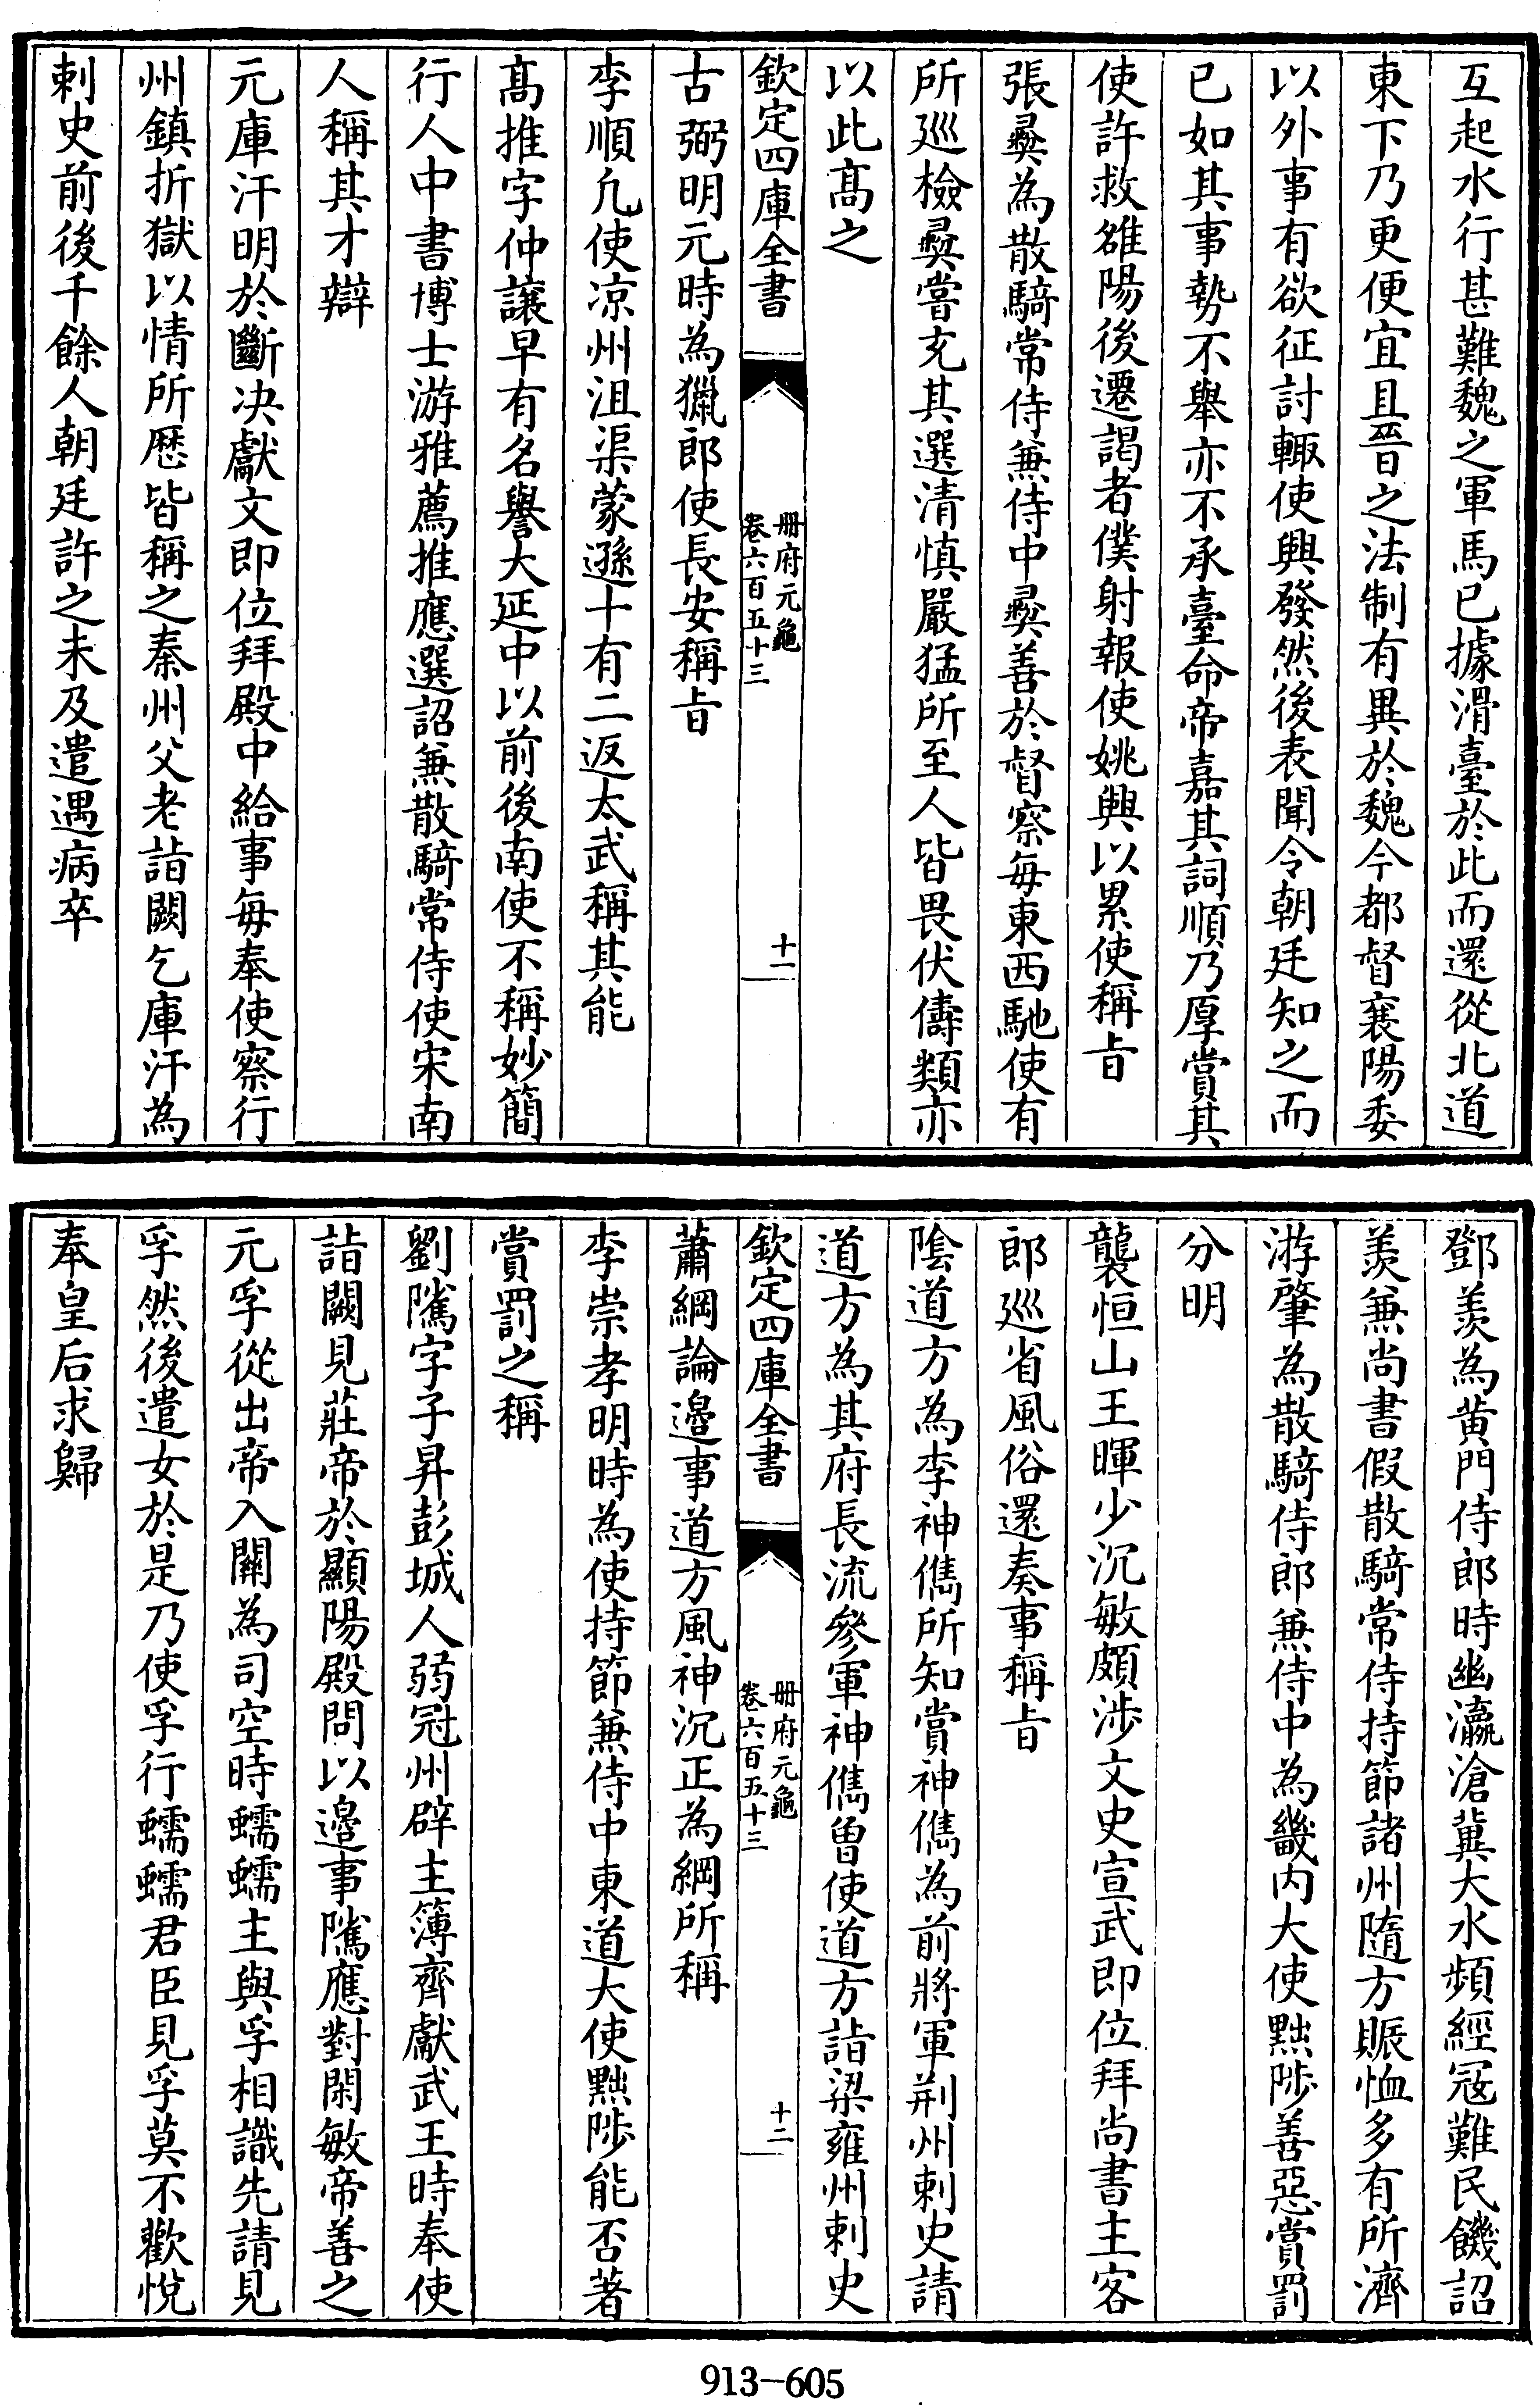 互起水行甚難魏之軍馬已據滑臺於此而還從北道
東下乃更便宜且晉之法制有異於魏今都督襄陽委
以外事有欲征討輒使興發然後表聞令朝廷知之而
已如其事勢不舉亦不承臺命帝嘉其詞順乃厚賞其
使許救雒陽後遷謁者僕射報使姚興以累使稱旨
張彛為散騎常侍兼侍中彛善於督察每東西馳使有
所廵檢彛嘗充其選清慎嚴猛所至人皆畏伏儔類亦
以此髙之
欽定四庫全書
冊府元龜
卷六百五十三
十一
古弼明元時為獵郎使長安稱旨
李順凢使凉州沮渠蒙遜十有二返太武稱其能
髙推字仲讓早有名譽大延中以前後南使不稱妙簡
行人中書博士游雅薦推應選詔兼散騎常侍使宋南
人稱其才辯
元庫汗明於斷决獻文即位拜殿中給事每奉使察行
州鎮折獄以情所歷皆稱之秦州父老詣闕乞庫汗為
刺史前後千餘人朝廷許之未及遣遇病卒
鄧羨為黄門侍郎時幽瀛滄冀大水頻經寇難民饑詔
羨兼尚書假散騎常侍持節諸州隨方賑恤多有所濟
游肇為散騎侍郎兼侍中為畿内大使黜陟善惡賞罰
分明
襲恒山王暉少沉敏頗渉文史宣武即位拜尚書主客
郎廵省風俗還奏事稱旨
陰道方為李神儁所知賞神儁為前將軍荆州刺史請
道方為其府長流參軍神儁曽使道方詣梁雍州刺史
欽定四庫全書
冊府元龜
卷六百五十三
十二
蕭綱論邊事道方風神沉正為綱所稱
李崇孝明時為使持節兼侍中東道大使黜陟能否著
賞罰之稱
劉隲字子昇彭城人弱冠州辟主簿齊獻武王時奉使
詣闕見莊帝於顯陽殿問以邊事隲應對閑敏帝善之
元孚從出帝入關為司空時蠕蠕主與孚相識先請見
孚然後遣女於是乃使孚行蠕蠕君臣見孚莫不歡悦
奉皇后求歸
913-605